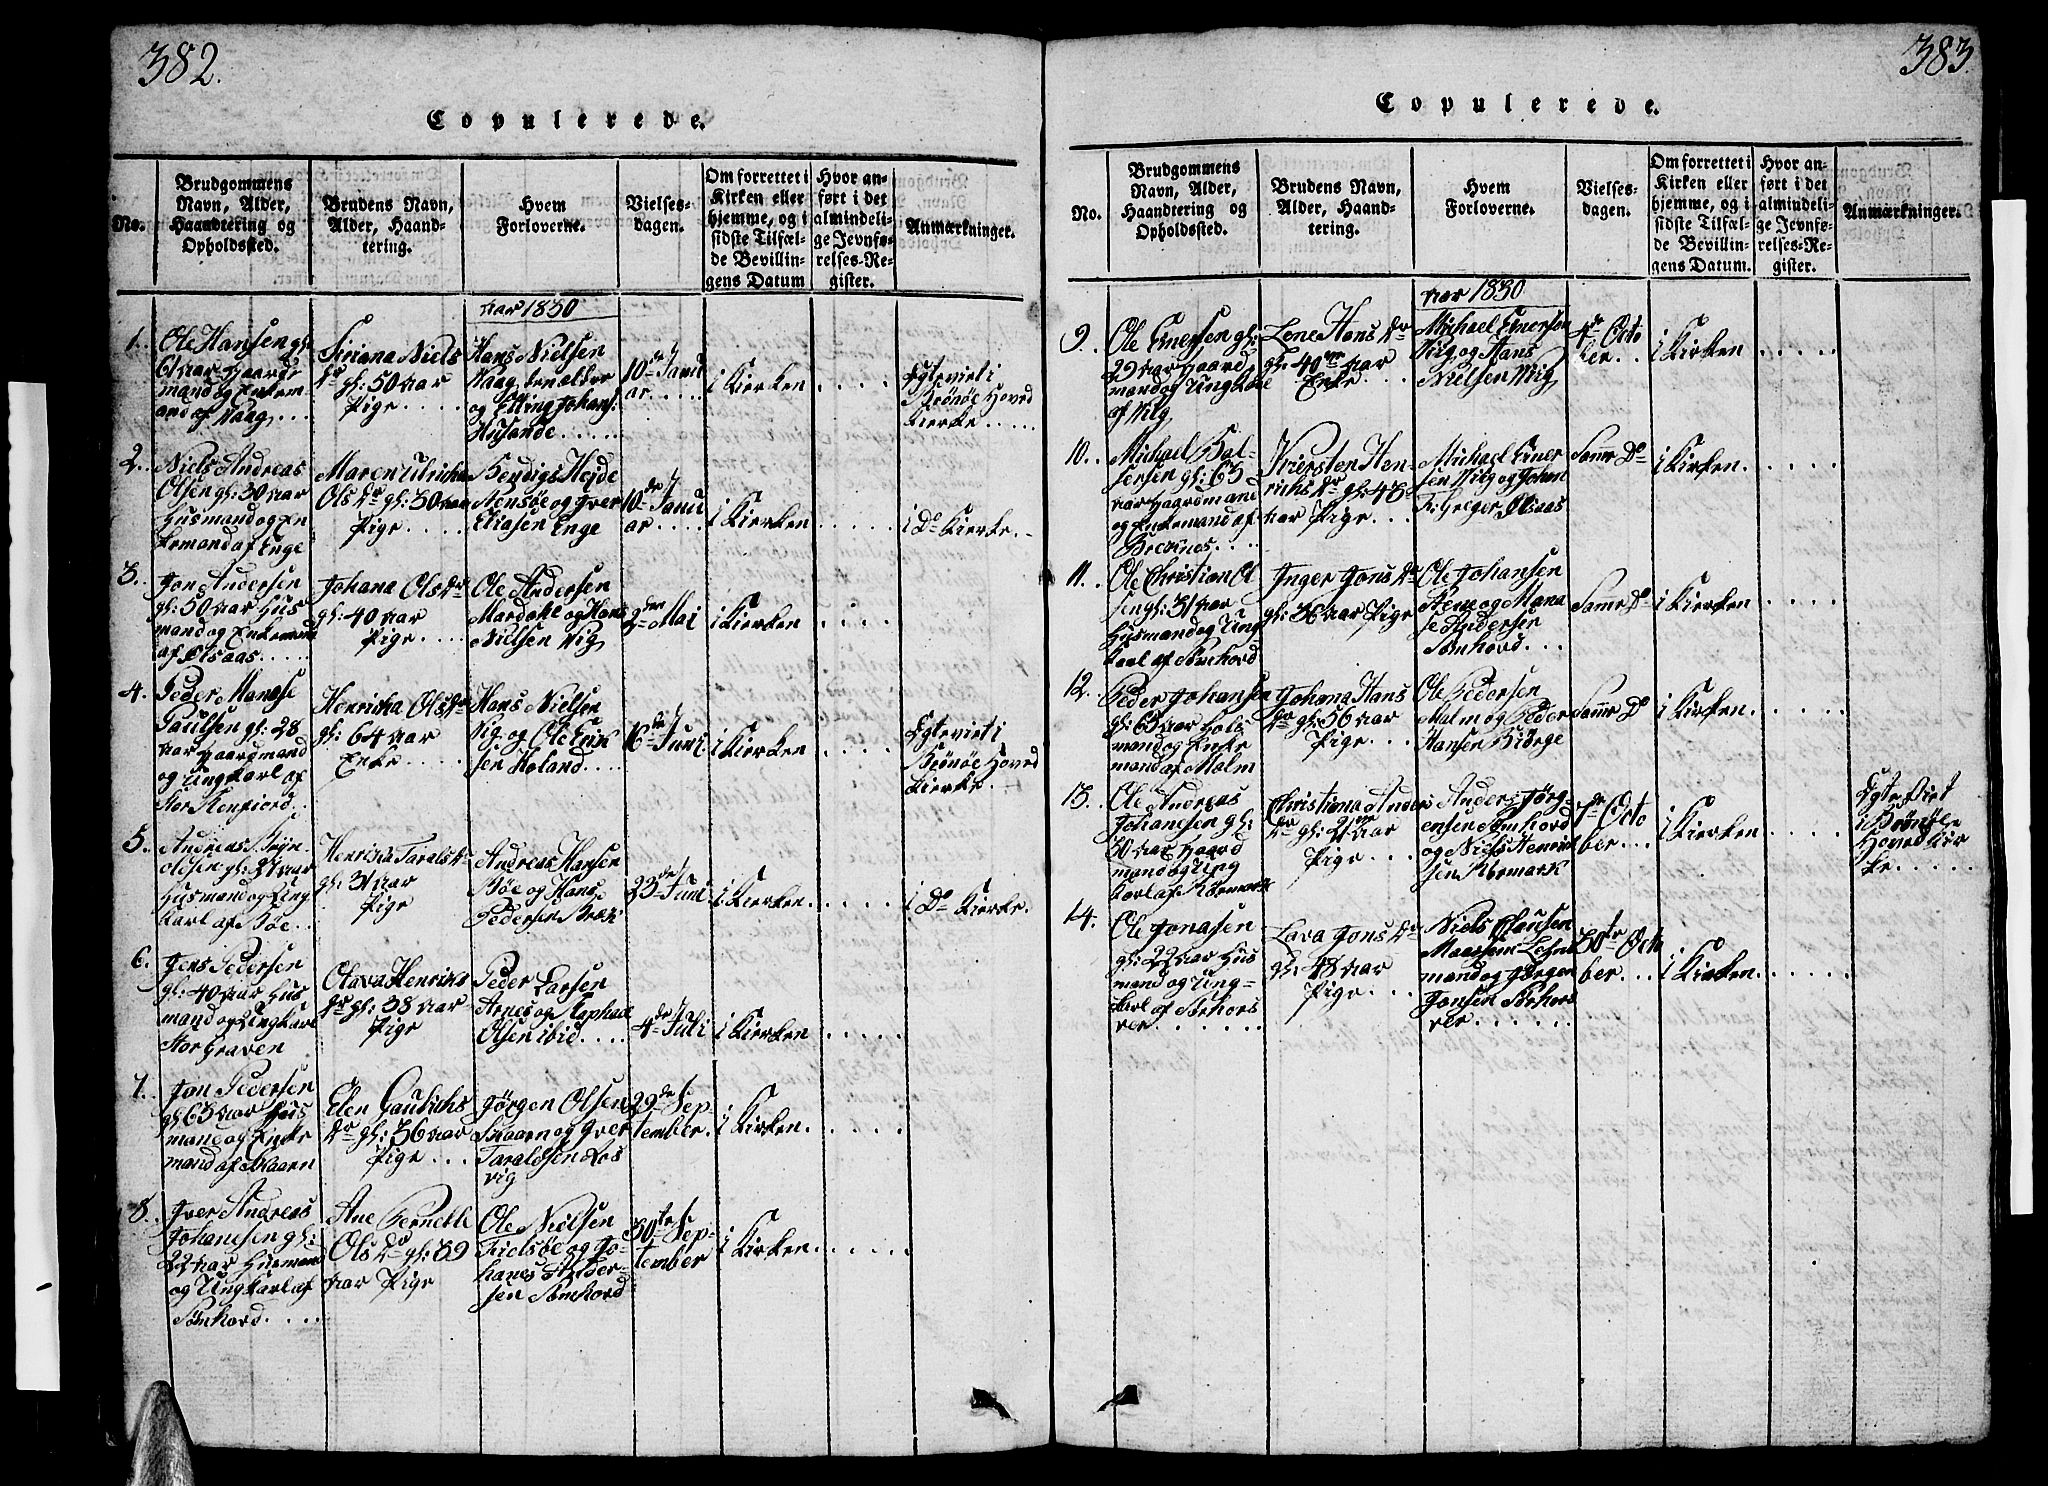 382.
Copulerede.
No.
Brudgommens
Navn, Alder,
Haandtering og
Opholdssted.
Brudens Navn,
Alder, Haand-
tering.
Hvem
Forloverne.
Vielses-
dagen.
Om forrettet i
Kirken eller
hjemme, og i
sidste Tilfæl-
de Bevillin-
gens Datum
Hvor an-
ført i det
almindeli-
ge Jevnfø-
relses-Re-
gister.
Anmærkninger.
Aar 1830
1.
Ole Hansen gl:
61 Aar Gaard
mand og Enkem
and af Vaag
Siriana Niels
Dr gl: 50 Aar
Pige
Hans Nielsen
Vaag
og Elling Johans:
Husande
10de Janu
ar
i Kierken
Egteviet i
Brønøe Hoved
Kierke
2.
Niels Andreas
Olsen gl: 30 Aar
Husmand og En
kemand af Enge
Maren Ulricka
Ols Dr gl: 30 Aar
Pige
Bendigs Hejde
og Iver
Eliasen Enge
10de Janu
ar
i Kierken
i Do Kierke
3.
Jon Andersen
gl: 50 Aar Hus
mand og Enkemand
af Olsaas
Johana Ols Dr
gl: 40 Aar
Pige
Ole Andersen
Mardahl og Hans
Nielsen Vig
2den Mai
i Kierken
4.
Peder Manase
Paulsen gl: 28
Aar Gaardmand
og Ungkarl af
Stor
Henricka Ols Dr
gl: 64 Aar
Enke
Hans Nielsen
Vig og Ole Erik
sen Holand
16de Juni
i Kierken
Egteviet i
Brønøe Hoved
Kierke
5.
Andreas Bryn
olsen gl: 34 Aar
Husmand og Ung
karl af Bøe
Henrika Tarals Dr
gl: 31 Aar
Pige
Andreas Hansen
Bøe og Hans
Pedersen
23de Juni
i Kierken
i Do Kierke.
6.
Jens Pedersen
gl: 40 Aar Hus
mand og Ungkarl
Storgraven
Olava Henriks
Dr gl: 38 Aar
Pige
Peder Larsen
Arnes og Staphan
Olsen ibid
4de Juli
i Kierken
7.
Jon Pedersen
gl 63 Aar Hus
mand og Enke
mand af Skaarn
Elen Gauticks
Dr gl: 36 Aar
Pige
Jørgen Olsen
Skaarn og Iver
Taraldsen Los
vig
29de Sep-
tember.
i Kirken
8.
Iver Andreas
Johanesen gl:
22 Aar Husmand
og Ungkarl af
Sømhovd
Ane Pernelle
Ols Dr gl: 39
Aar Pige
Ole Nielsen
Tielsøe og Jo-
hanes Ander-
sen Sømhovd
30te Sep-
tember
i Kirken
383.
Copulerede.
No.
Brudgommens
Navn, Alder,
Haandtering og
Opholdssted.
Brudens Navn,
Alder, Haand-
tering.
Hvem
Forloverne.
Vielses-
dagen.
Om forrettet i
Kirken eller
hjemme, og i
sidste Tilfæl-
de Bevillin-
gens Datum.
Hvor an-
ført i det
almindeli-
ge Jevnfø-
relses-Re-
gister.
Anmærkninger.
Aar 1830
9.
Ole Enersen gl:
29 Aar Gaard
mand og Ungkarl
af Vig
Lene Hans Dr
gl: 40 Aar
Enke
Michael Enersen
Vig og Hans
Nielsen Vig
4de Octo
ber
i Kirken
10.
Michael Bal-
sersen gl: 63
Aar Gaardmand
og Enkemand af
Breknes
Kiersten Hen-
richs Dr gl: 43
Aar Pige
Michael Ener
sen Vig og Johan
Fr: Greger Olsaas
Samme Do
i Kirken
11.
Ole Christian Ol
sen gl: 31 Aar
Husmand og Ung-
karl af Sømhovd
Inger Jons Dr
gl: 36 Aar Pige
Ole Johansen
og Mana
se Andersen
Sømhovd
Samme Do
i Kierken
12.
Peder Johansen
gl: 63 Aar Hus
mand og Enke
mand af Malm
Johana Hans
Dr gl: 56 Aar
Pige
Ole Pedersen
Malm og Peder
Hansen Biørge
Samme Do
i Kirken
13.
Ole Andreas
Johanesen gl:
30 Aar Gaard
mand og Ung
karl af Kormark
Christiana Anders
Dr gl: 21 Aar
Pige
Anders Jørg-
ensen Sømhovd
og Niels Henrik
sen Kormark
7de Octo
ber
i Kierken
Egte Viet
i Brønøe
Hoved Kir
ke
14.
Ole Jonasen
gl: 22 Aar Hus
mand og Ung-
karl af Sørhors
ver
Lava Jons Dr
gl: 48 Aar
Pige
Niels Clausen
Maasem Lehns
mand og Jørgen
Jonsen Sørhors
ver
30te Octo
ber
i Kirken